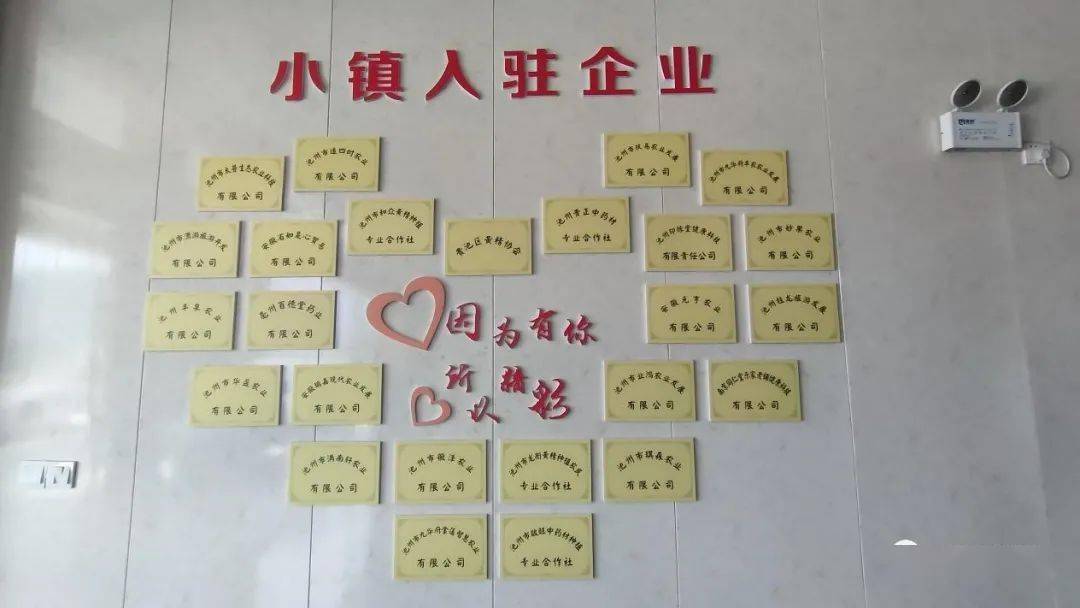 小镇入驻企业
池州市遠四时农业
有限公司
池州市扶易农业发展
有限公司
池州市太普生态农业科技
有限公司
池州市九华府丰农农业发展
有限公司
池州市和众黄精种植
专业合作社
池州贵正中药材
专业合作社
贵池区黄精协会
池州市潇游旅游开发
有限公司
安徽石如是心贸易
有限公司
池州印栋堂健康科技
有限责任公司
池州市妙果农业
有限公司
池州丰泉农业
有限公司
亳州百德堂药业
有限公司
安徽元亨农业
有限公司
池州桂龙旅游发展
有限公司
因为有你
所以精彩
池州市华蓝农业
有限公司
安徽颐嘉现代农业发展
有限公司
池州市业鸿农业发展
有限公司
南京同仁堂乐家老铺健康科技
有限公司
池州市涓南轩农业
有限公司
池州市徽泽农业
有限公司
池州市龙衔黄精种植农民
专业合作社
池州市琪森农业
有限公司
池州市九华府金莲智慧农业
有限公司
池州市中药材种植
专业合作社